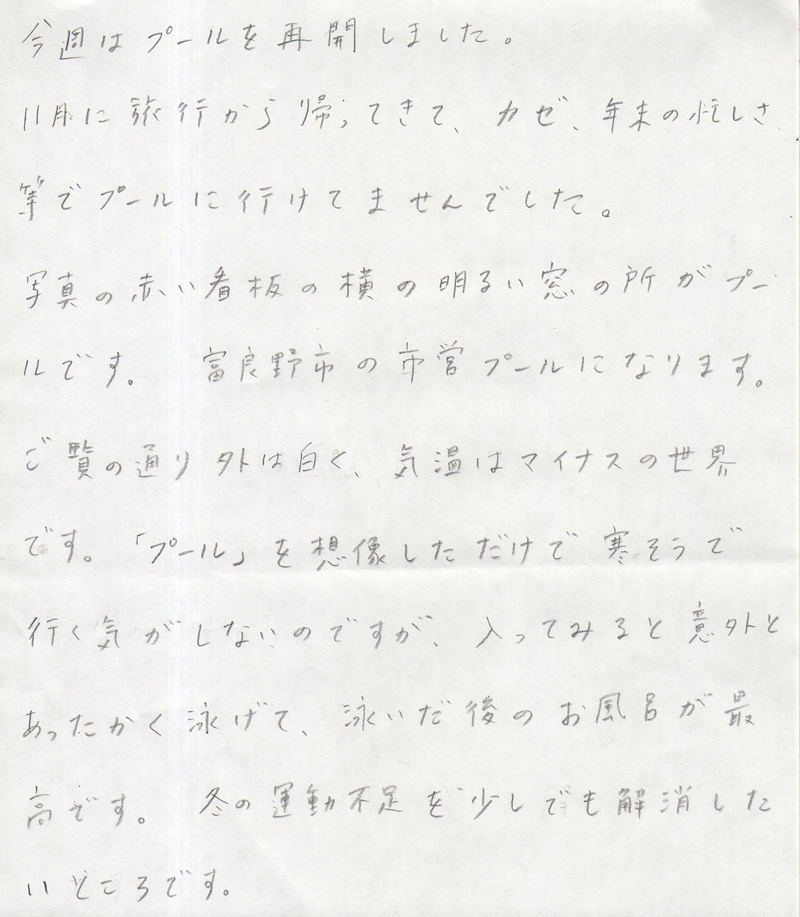 今週はプールを再開しました。
11月に旅行から帰ってきて、カゼ、年末の忙しさ
等でプールに行けてませんでした。
写真の赤い看板の横の明るい窓の所がプー
ルです。 富良野市の市営プールになります。
ご覧の通り外は白く、気温はマイナスの世界
です。「プール」を想像しただけで寒そうで
行く気がしないのですが、入ってみると意外と
あったかく泳げて、泳いだ後のお風呂が最
高です。 冬の運動不足を少しでも解消した
いところです。